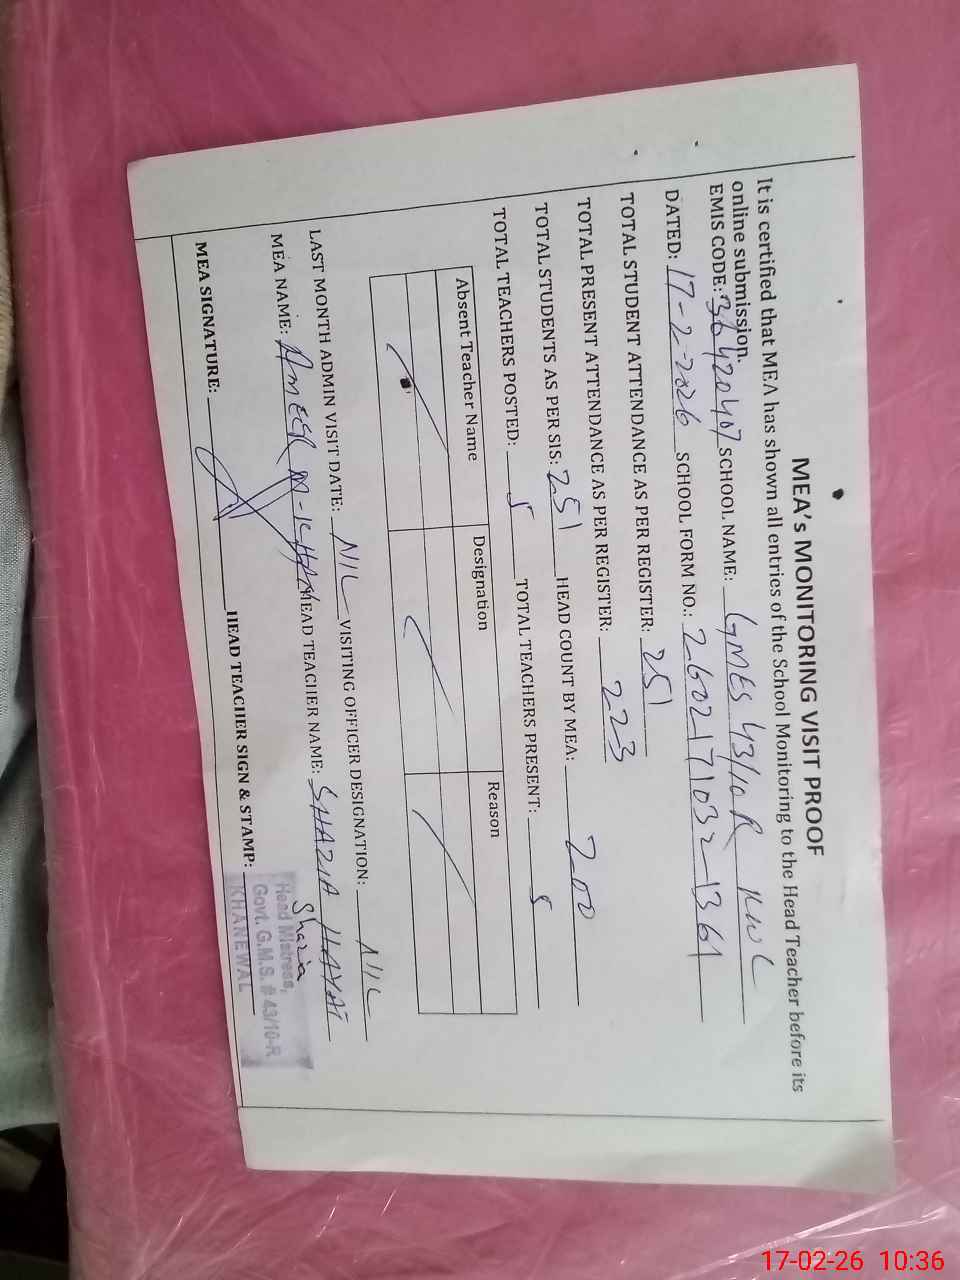 MEA's MONITORING VISIT PROOF
It is certified that MEA has shown all entries of the School Monitoring to the Head Teacher before its
online submission.
EMIS CODE: 36420407 SCHOOL NAME: GMES 43/10R KWL
DATED: 17-2-2026 SCHOOL FORM NO.: 2602171032-1361
TOTAL STUDENT ATTENDANCE AS PER REGISTER: 251
TOTAL PRESENT ATTENDANCE AS PER REGISTER: 223
TOTAL STUDENTS AS PER SIS: 251 HEAD COUNT BY MEA: 200
TOTAL TEACHERS POSTED: 5 TOTAL TEACHERS PRESENT: 5
Absent Teacher Name Designation Reason
LAST MONTH ADMIN VISIT DATE: NIL VISITING OFFICER DESIGNATION: NIL
MEA NAME: AMEER M-KHAN HEAD TEACHER NAME: SHAZIA HAYAT
MEA SIGNATURE: HEAD TEACHER SIGN & STAMP: Shazia
Head Mistress,
Govt. G.M.S. # 43/10-R
KHANEWAL
17-02-26 10:36